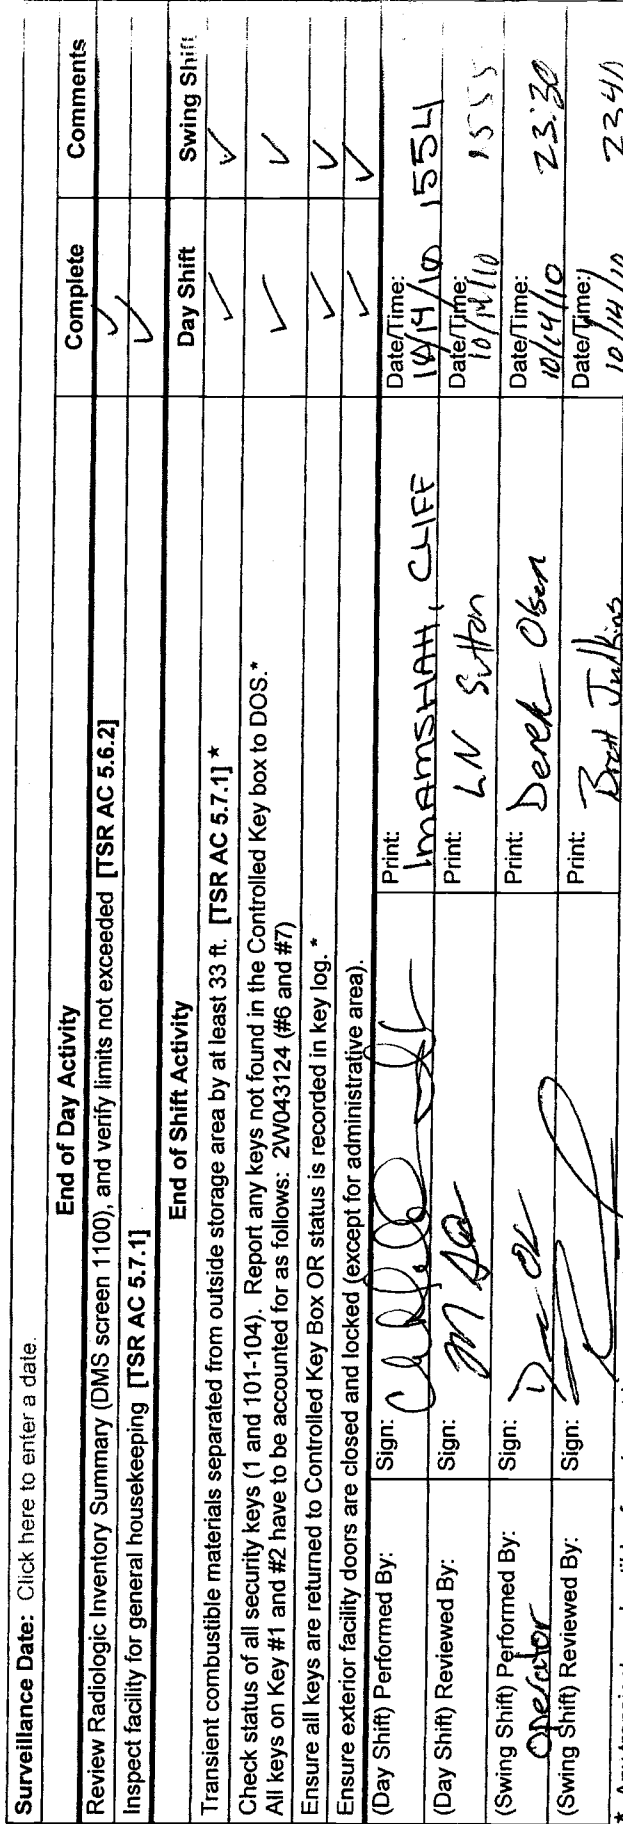 Surveillance Date: Click here to enter a date.
End of Day Activity Complete Comments
Review Radiologic Inventory Summary (DMS screen 1100), and verify limits not exceeded [TSR AC 5.6.2] ✓
Inspect facility for general housekeeping [TSR AC 5.7.1] ✓
End of Shift Activity Day Shift Swing Shift
Transient combustible materials separated from outside storage area by at least 33 ft. [TSR AC 5.7.1] * ✓ ✓
Check status of all security keys (1 and 101-104). Report any keys not found in the Controlled Key box to DOS.* ✓ ✓
All keys on Key #1 and #2 have to be accounted for as follows: 2W043124 (#6 and #7)
Ensure all keys are returned to Controlled Key Box OR status is recorded in key log. * ✓ ✓
Ensure exterior facility doors are closed and locked (except for administrative area). ✓ ✓
(Day Shift) Performed By: Sign: Print: Date/Time:
IMAMSHAH, CLIFF 10/14/10 1554
(Day Shift) Reviewed By: Sign: Print: Date/Time:
LN Sutton 10/14/10 1555
(Swing Shift) Performed By: Sign: Print: Date/Time:
Operator Derek Olsen 10/14/10 23:30
(Swing Shift) Reviewed By: Sign: Print: Date/Time:
Brett Julkins 10/14/10 2340